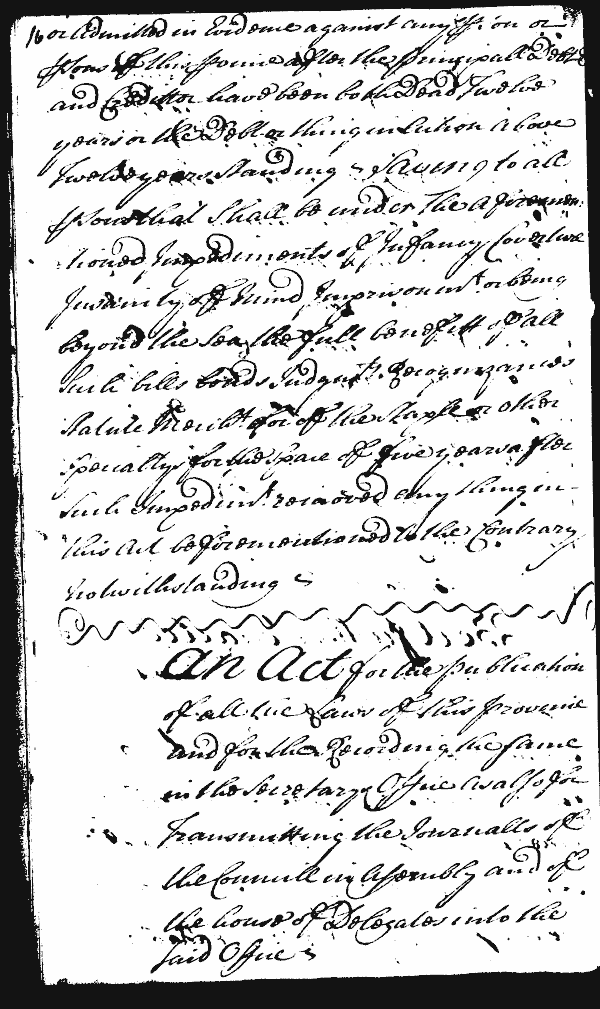 or Admitted in Evidence against any pson or
psons of this province after the principall Debtor
and Creditor have been both Dead Twelve
years or the Debt or thing in Action above
Twelve years standing Saving to all
psons that Shall be under the aforemen-
tioned Impediments of Infancy Coverture
Insanity of Mind Imprisonmt or being
beyond the Sea the full benefitt of all
Such bills bonds Judgmts Recognizances
Statute Mercht or of the Staple or other
Specialtys for the space of five years after
Such Impedimt removed any thing in
this Act beforementioned to the Contrary
notwithstanding
An Act for the publication
of all the Laws of this province
and for the Recording the same
in the Secretarys Office as also for
Transmitting the Journalls of
the Councill in Assembly and of
the house of Delegates into the
Said Office